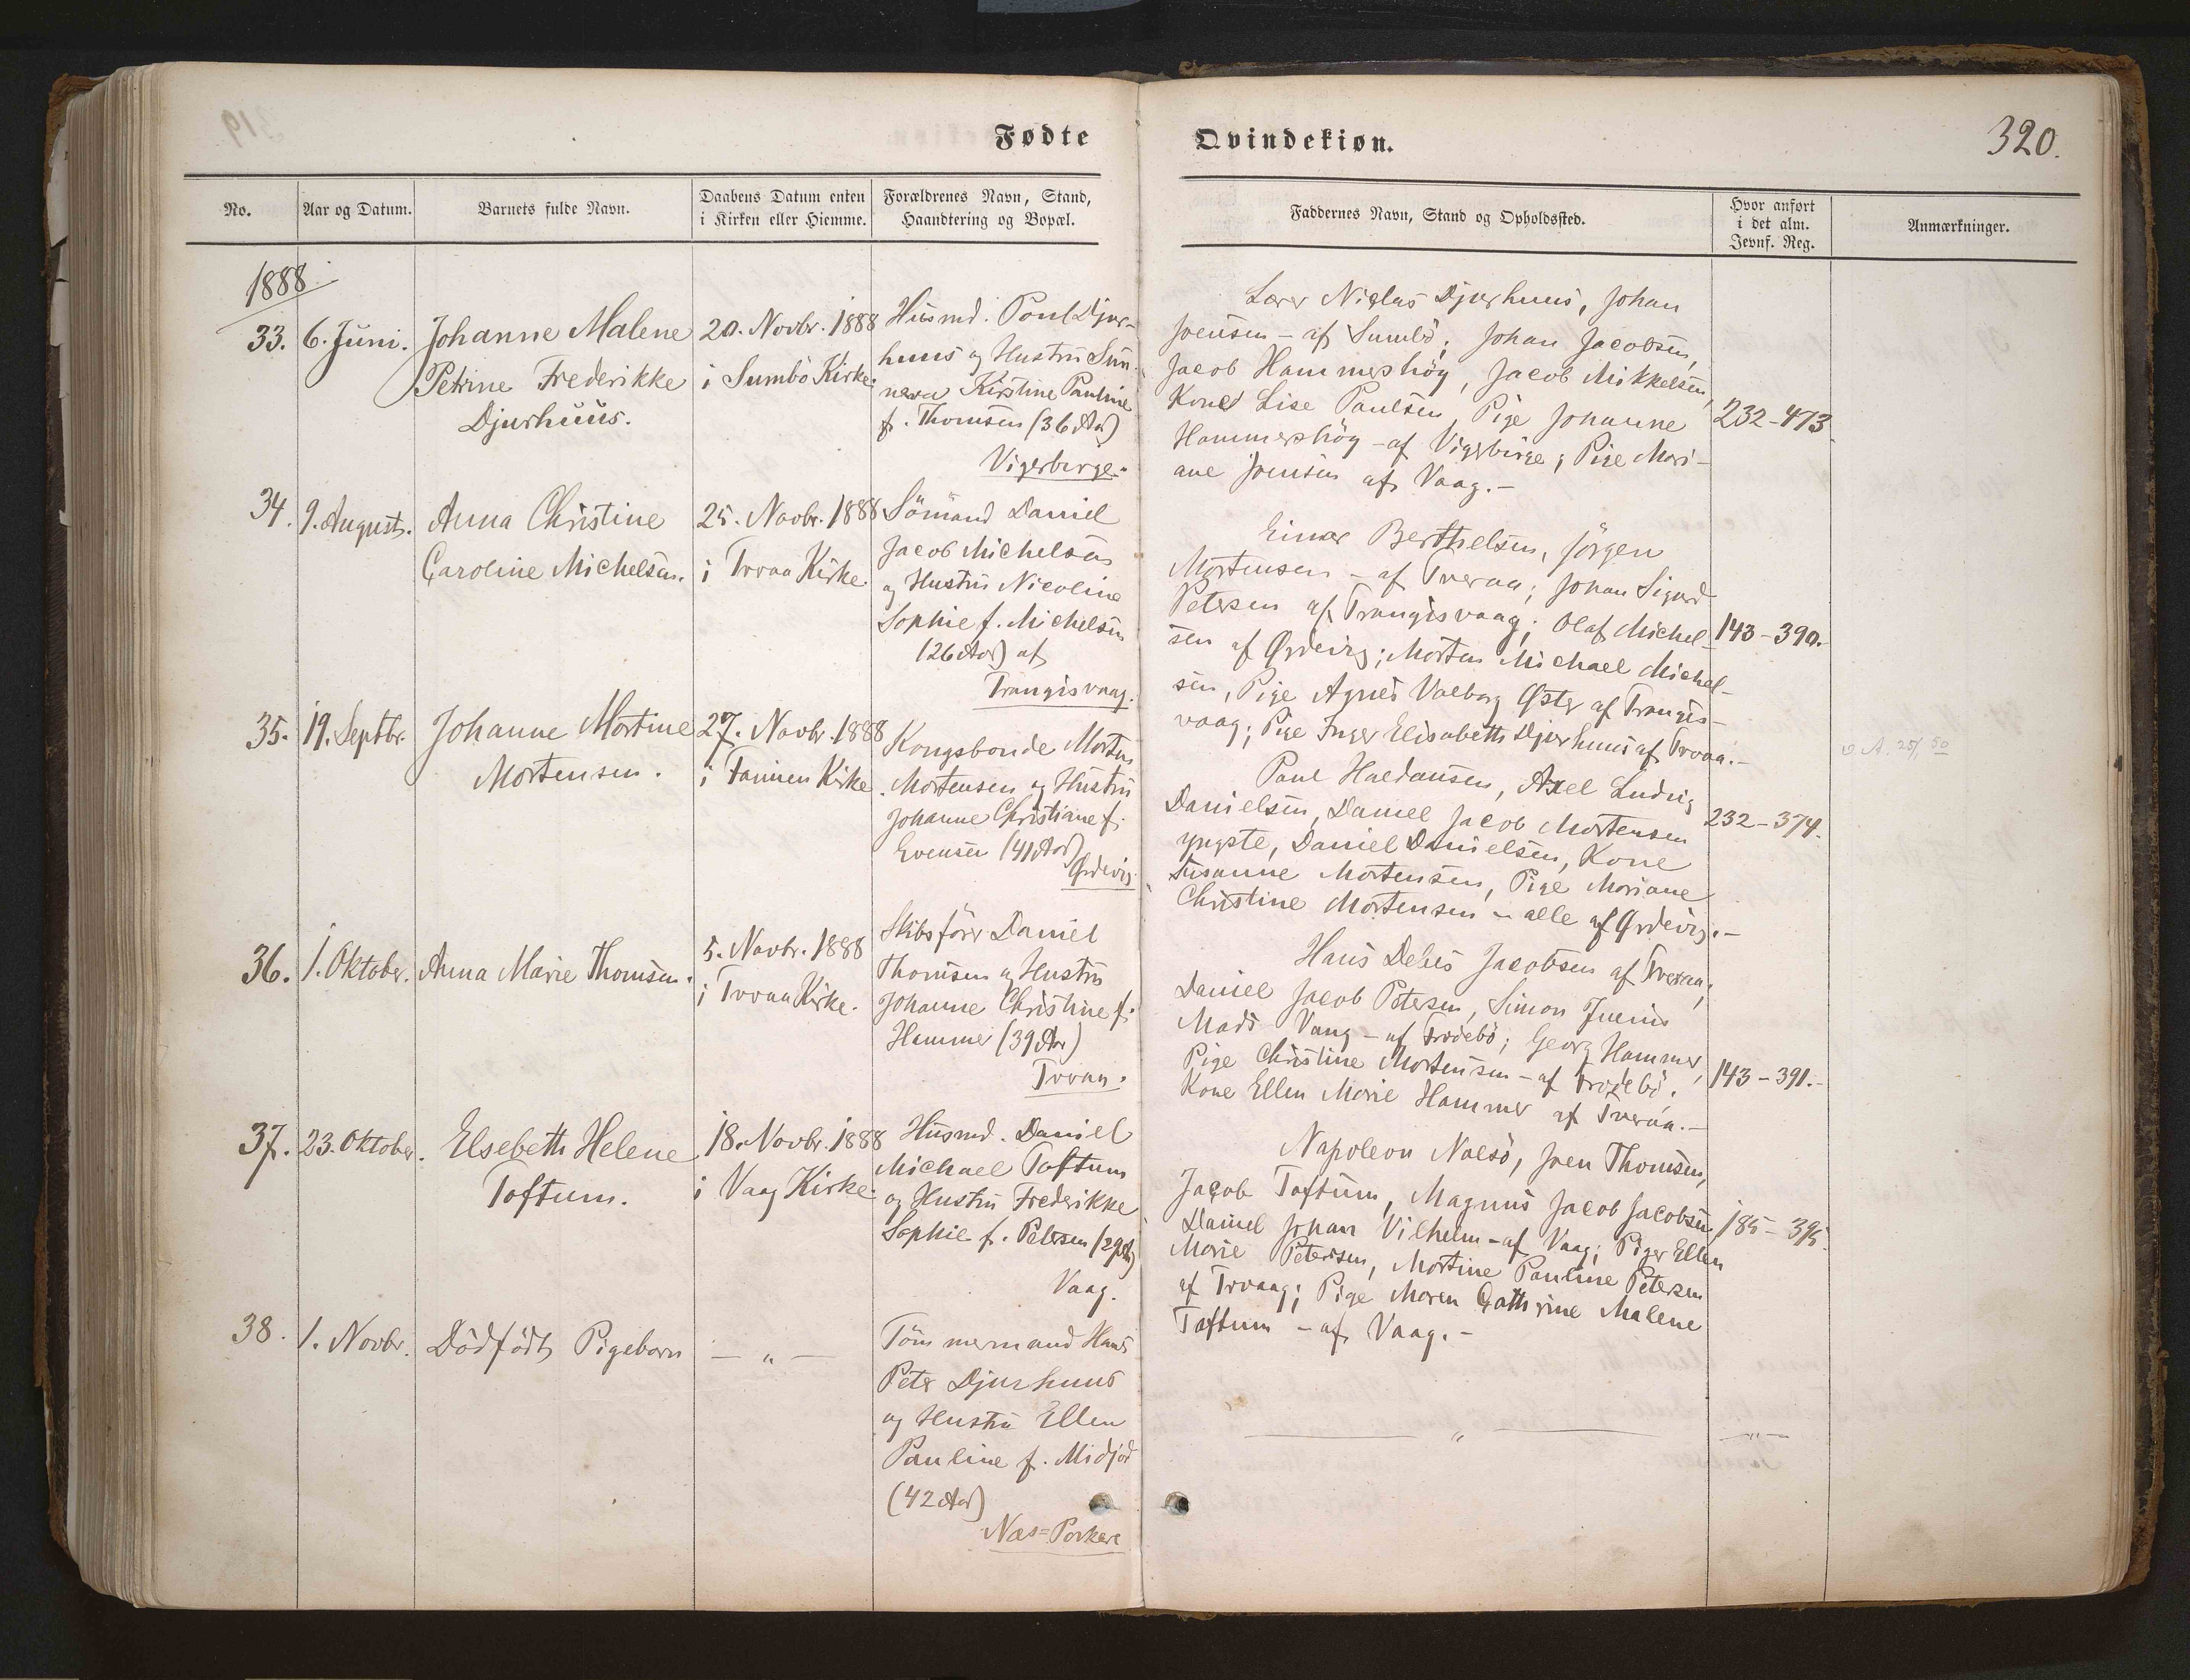 Fødte
Qvindekiøn.
320.
No.
Aar og Datum.
Barnets fulde Navn.
Daabens Datum enten
i Kirken eller Hiemme.
Forældrenes Navn, Stand,
Haandtering og Bopæl.
Faddernes Navn, Stand og Opholdssted.
Hvor anført
i det alm.
Jevnf. Reg.
Anmærkninger.
1888
33.
6. Juni.
Johanne Malene
Petrine Frederikke
Djurhuus.
20. Novbr. 1888
i Sumbö Kirke.
Husmd. Poul Djur-
huus og Hustru Sun-
neva Kirstine Pauline
f. Thomsen (36 Aar)
Vigerbirge.
Lærer Niclas Djurhuus, Johan
Joensen - af Sumbö; Johan Jacobsen,
Jacob Hammershög, Jacob Mikkelsen,
Kone Lise Poulsen, Pige Johanne
Hammershög - af Vigerbirge; Pige Mari-
ane Joensen af Vaag. -
232-473.
34.
9. August.
Anna Christine
Caroline Michelsen.
25. Novbr. 1888
i Tvraa Kirke.
Sömand Daniel
Jacob Michelsen
og Hustru Nicoline
Sophie f. Michelsen
(26 Aar) af
Trangisvaag.
Einar Berthelsen, Jörgen
Mortensen - af Tveraa; Johan Sigurd
Petersen af Trangisvaag; Olaf Michel-
sen af Ørdevig; Morten Michael Michel-
sen, Pige Agnes Valborg Øster af Trangis-
vaag; Pige Inger Elisabeth Djurhuus af Tvraa. -
143-390.
35.
19. Septbr.
Johanne Mortine
Mortensen.
27. Novbr. 1888
i Famien Kirke.
Kongsbonde Morten
Mortensen og Hustru
Johanne Christiane f.
Evensen (41 Aar)
Ørdevig.
Poul Haldansen, Axel Ludvig
Danielsen, Daniel Jacob Mortensen
yngste, Daniel Danielsen, Kone
Susanne Mortensen, Pige Mariane
Christine Mortensen - alle af Ørdevig. -
232-374.
36.
1. Oktober.
Anna Marie Thomsen.
5. Novbr. 1888
i Tvraa Kirke.
Skibsförer Daniel
Thomsen og Hustru
Johanne Christine f.
Hammer (39 Aar)
Tvraa.
Hans Debes Jacobsen af Tveraa;
Daniel Jacob Petersen, Simon Juenis
Mads Vang - af Frodebö; Georg Hammer,
Pige Christine Mortensen - af Frodebö.
Kone Ellen Marie Hammer af Tveraa. -
143-391. -
37.
23. Oktober.
Elsebeth Helene
Toftum.
18. Novbr. 1888
i Vaag Kirke.
Husmd. Daniel
Michael Toftum
og Hustru Frederikke
Sophie f. Petersen (29 Aar)
Vaag.
Napoleon Nolsö, Joen Thomsen,
Jacob Toftum, Magnus Jacob Jacobsen
Daniel Johan Vilhelm - af Vaag; Piger Ellen
Marie Petersen, Mortine Pauline Petersen
af Trvaag; Pige Maren Cathrine Malene
Toftum - af Vaag. -
185-395.
38.
1. Novbr.
Dödfödt Pigebarn
- " -
Tömmermand Hans
Peter Djurhuus
og Hustru Ellen
Pauline f. Midjord
(42 Aar)
Næs=Porkere
- " -
- " -